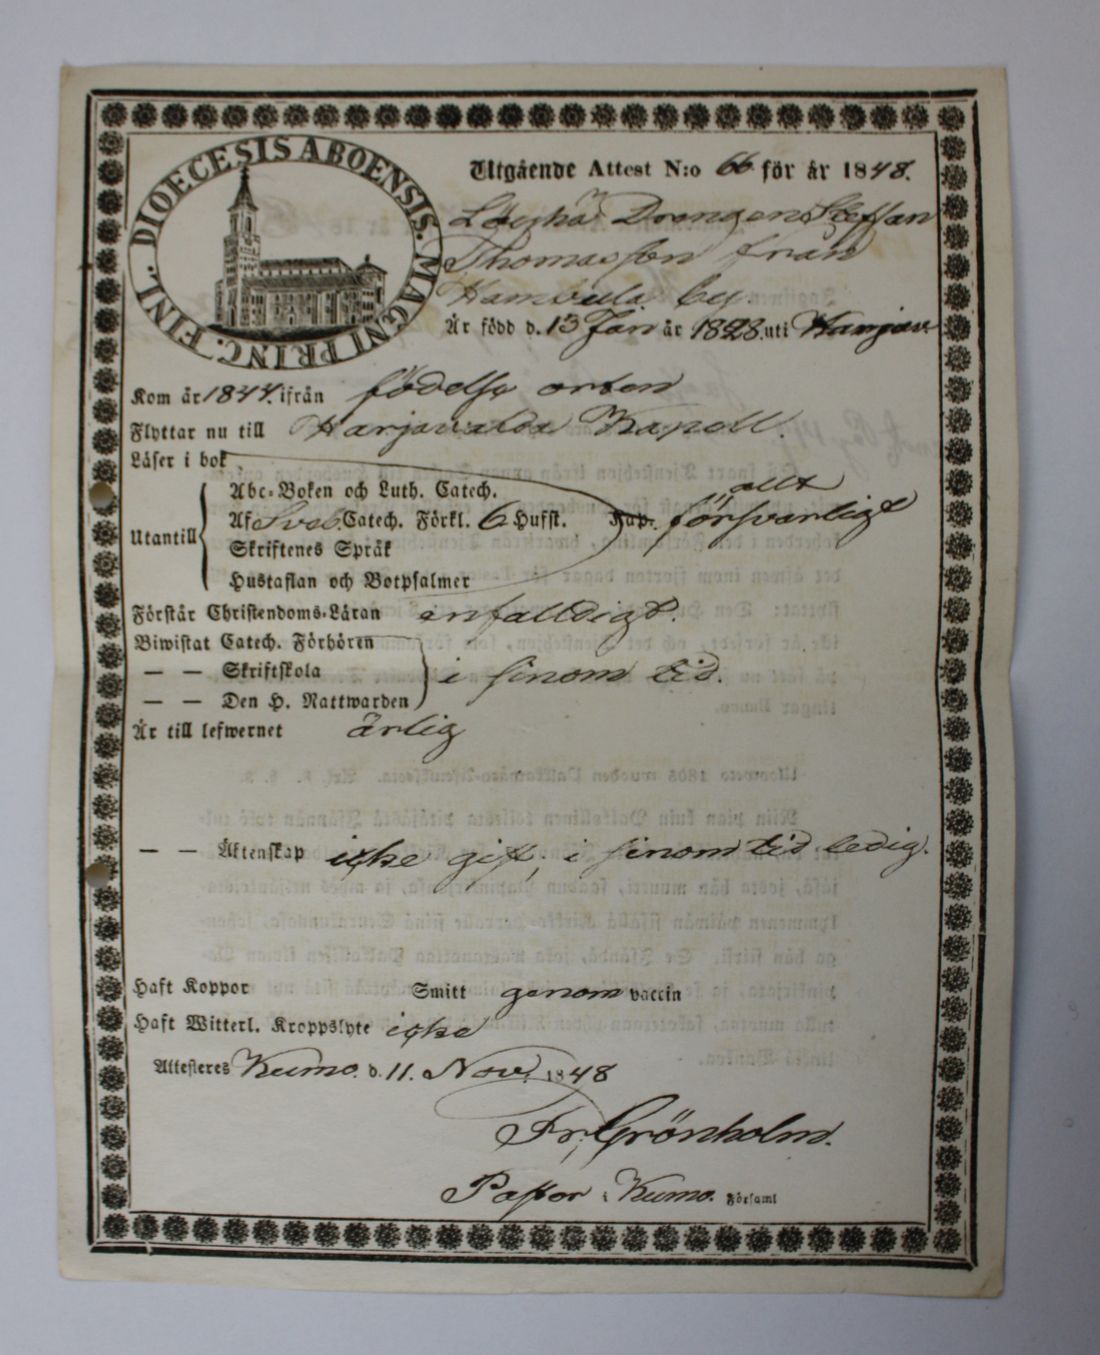 DIOECESIS ABOENSIS. MAGNI PRINC. FINL.
Utgående Attest N:o 66 för år 1848.
Drengen Steffan
Thomasson från
by.
Är född d. 13 Jan år 1828. uti Harjav.
Kom år 1844. ifrån födelse orten
Flyttar nu till Harjavalda Kapell.
Läser i bok
Abc-Boken och Luth. Catech.
allt
Utantill
Af Sveb. Catech. Förkl. 6 Hufst. Kap. försvarligt
Skriftenes Språk
Hustaflan och Botpsalmer
Förstår Christendoms-Läran enfalldigt.
Biwistat Catech. Förhören
— — Skriftskola i sinom tid.
— — Den H. Nattwarden
Är till lefwernet ärlig
— — Äktenskap icke gift, i sinom tid ledig.
Haft Koppor Smitt genom vaccin
Haft Witterl. Kroppslyte icke
Attesteres Kumo. d. 11. Nov. 1848
Fr. Grönholm.
Pastor i Kumo. Församl